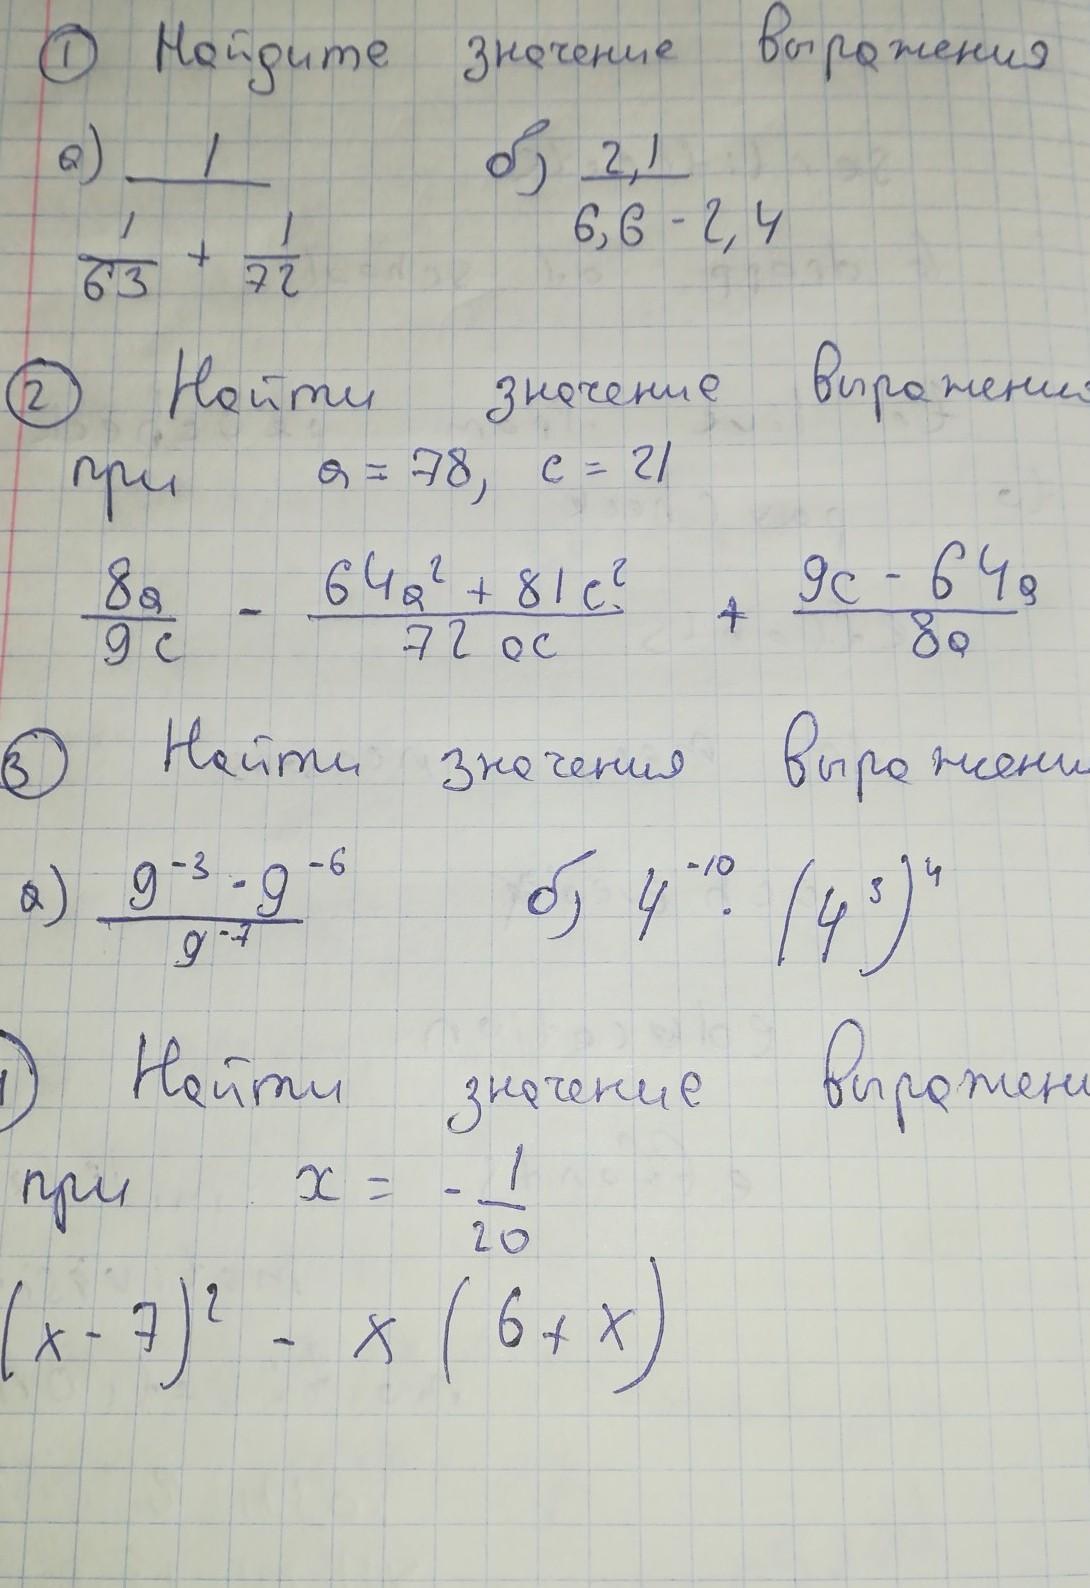 ① Найдите значение выражения
а) 1 / (1/63 + 1/72)    б) 2,1 / (6,6 - 2,4)
② Найти значение выражения
при a = 78, c = 21
8a/9c - (64a² + 81c²)/72ac + (9c - 64a)/8a
③ Найти значения выражени
а) (9⁻³ · 9⁻⁶) / 9⁻⁷    б) 4⁻¹⁰ · (4³)⁴
Найти значение выражени
при x = - 1/20
(x - 7)² - x (6 + x)